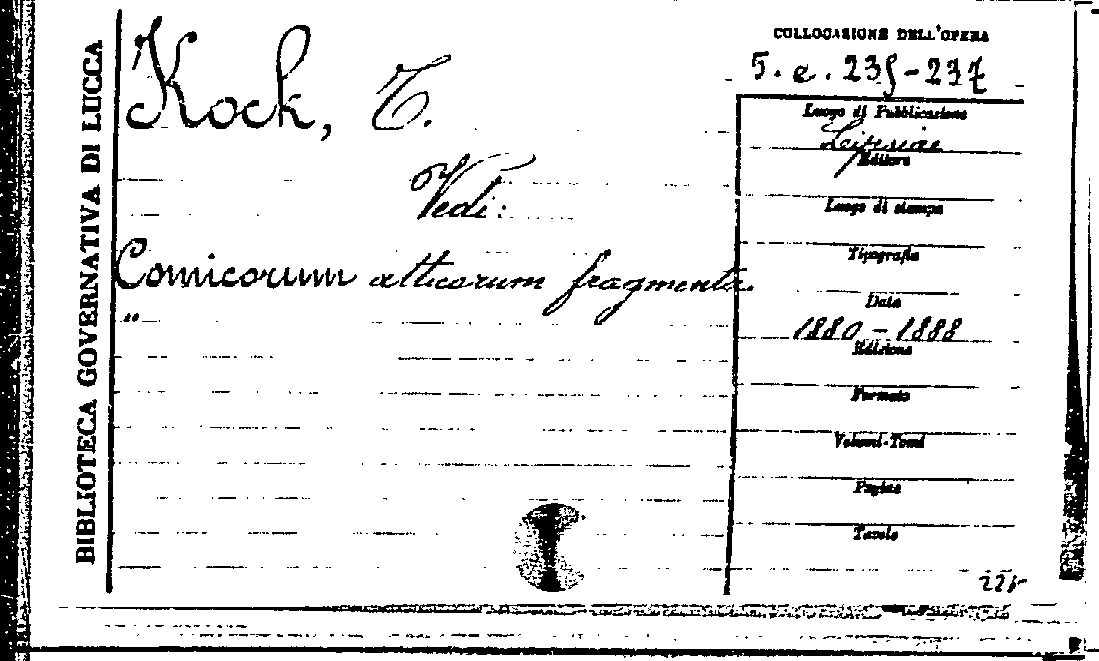 BIBLIOTECA GOVERNATIVA DI LUCCA
Kock, T.
Vedi:
Comicorum atticorum fragmenta.
"
COLLOCAZIONE DELL'OPERA
5. e. 235-237
Luogo di Pubblicazione
Lipsiae
Editore
Luogo di stampa
Tipografia
Data
1880-1888
Edizione
Formato
Volumi-Tomi
Pagine
Tavole